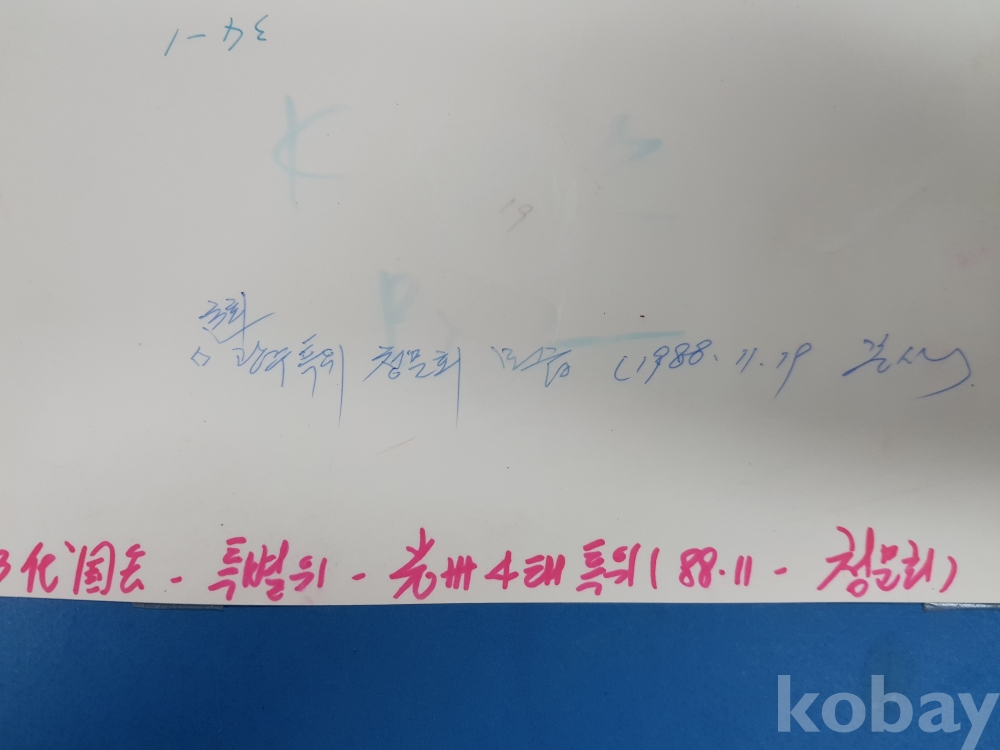 국회
광주특위 청문회 모습 (1988.11.19 본사)
3代 国会 - 특별위 - 光州사태특위 (88.11 - 청문회)
kobay